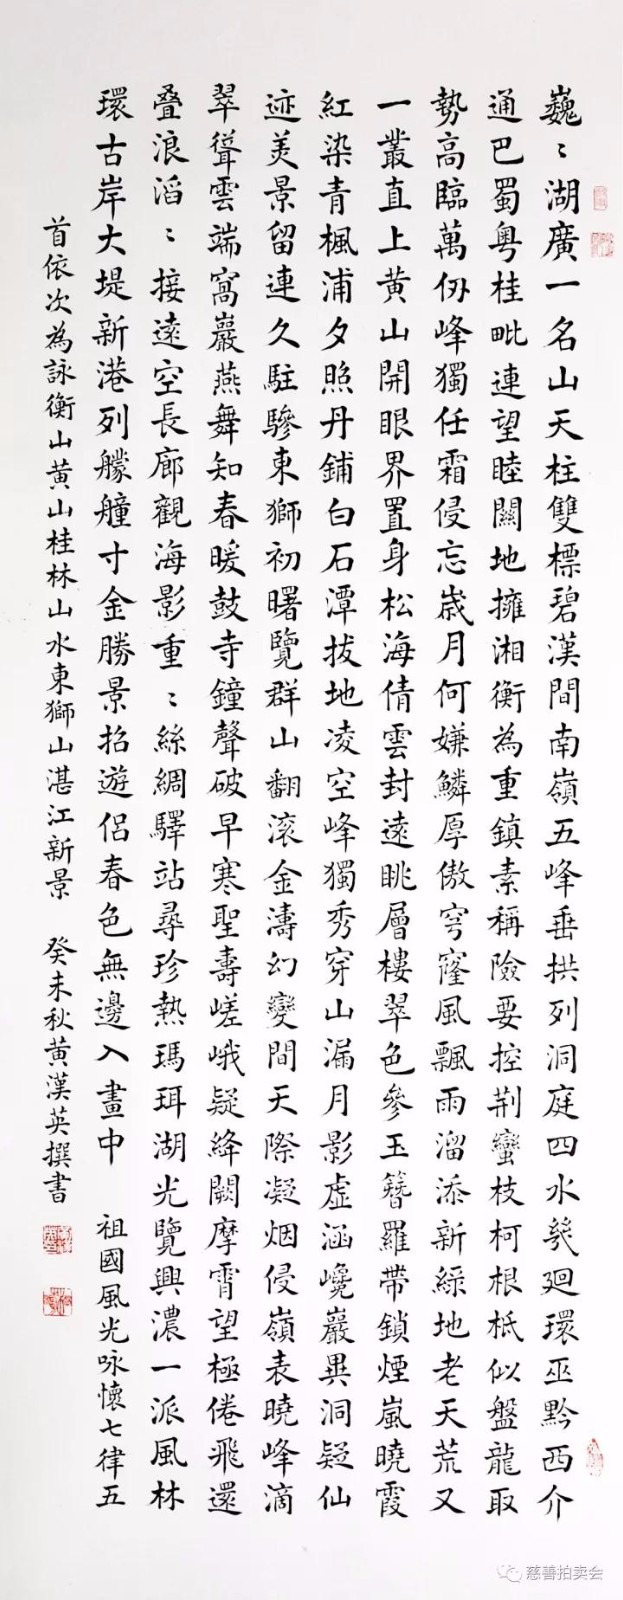 巍〻湖廣一名山天柱雙標碧漢間南嶺五峰垂拱列洞庭四水幾廻環巫黔西介
通巴蜀粤桂毗連望睦關地擁湘衡為重鎮素稱險要控荆蠻枝柯根柢似盤龍取
勢高臨萬仞峰獨任霜侵忘歲月何嫌鱗厚傲穹窿風飄雨溜添新綠地老天荒又
一叢直上黄山開眼界置身松海倩雲封遠眺層樓翠色參玉簪羅帶鎖煙嵐曉霞
紅染青楓浦夕照丹鋪白石潭拔地凌空峰獨秀穿山漏月影虛涵巉巖異洞疑仙
迹美景留連久駐驂東獅初曙覽群山翻滚金濤幻變間天際凝烟侵嶺表曉峰滴
翠聳雲端窩巖燕舞知春暖鼓寺鐘聲破早寒聖壽嵯峨疑絳闕摩霄望極倦飛還
叠浪滔〻接遠空長廊觀海影重〻絲綢驛站尋珍熱瑪珥湖光覽興濃一派風林
環古岸大堤新港列艨艟寸金勝景招遊侣春色無邊入畫中 祖國風光咏懷七律五
首依次為詠衡山黄山桂林山水東獅山湛江新景 癸未秋黄漢英撰書
慈善拍卖会